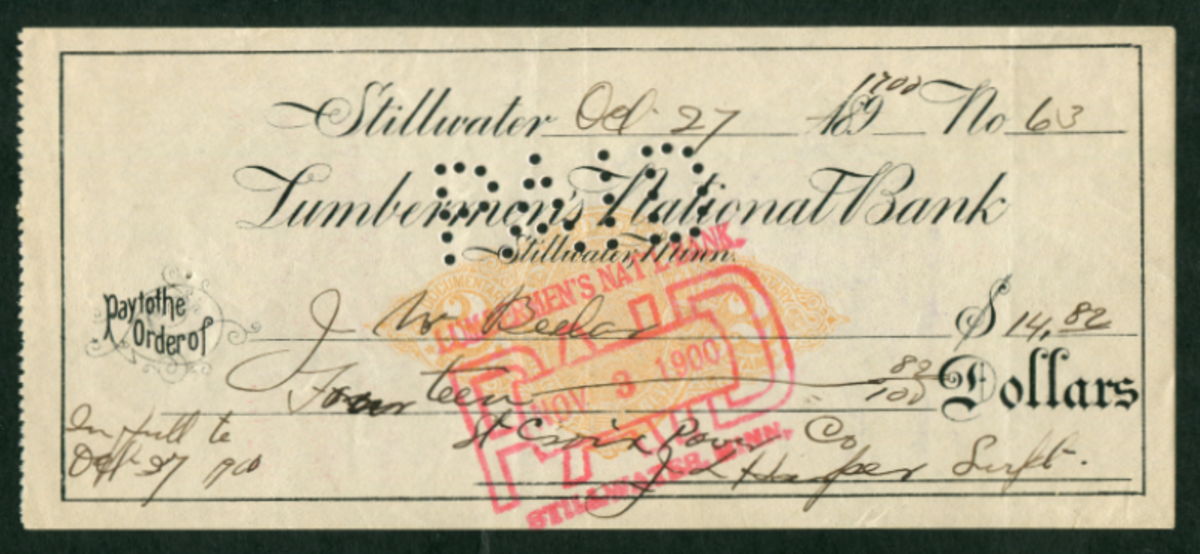 Stillwater Oct. 27 189 1900 No 63
PAID
Lumbermen's National Bank
Stillwater, Minn.
LUMBERMEN'S NAT'L BANK.
Pay to the
Order of
J W $ 14,82
PAID
NOV 3 1900
Fourteen 82/100 Dollars
In full to
Oct 27 1900
St Croix Power Co
J L Harper Supt.
STILLWATER, MINN.